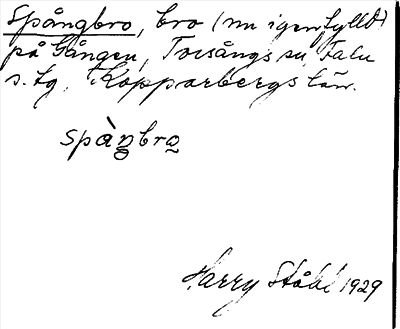 Spångbro, bro (nu igenfylld)
på Gången, Torsångs sn, Falu
s. tg, Kopparbergs län.
spàŋbro
Harry Ståhl 1929